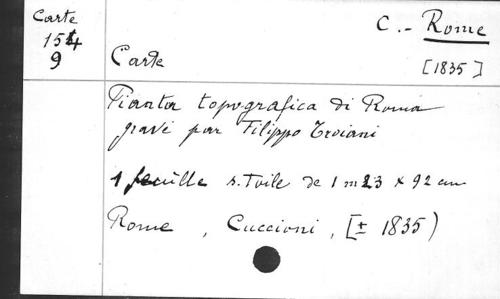 Carte
154
9
C. - Rome
Carte
[1835]
Pianta topografica di Roma
gravé par Filippo Troiani
1 feuille s. toile de 1 m 23 x 92 cm
Rome, Cuccioni, [± 1835)